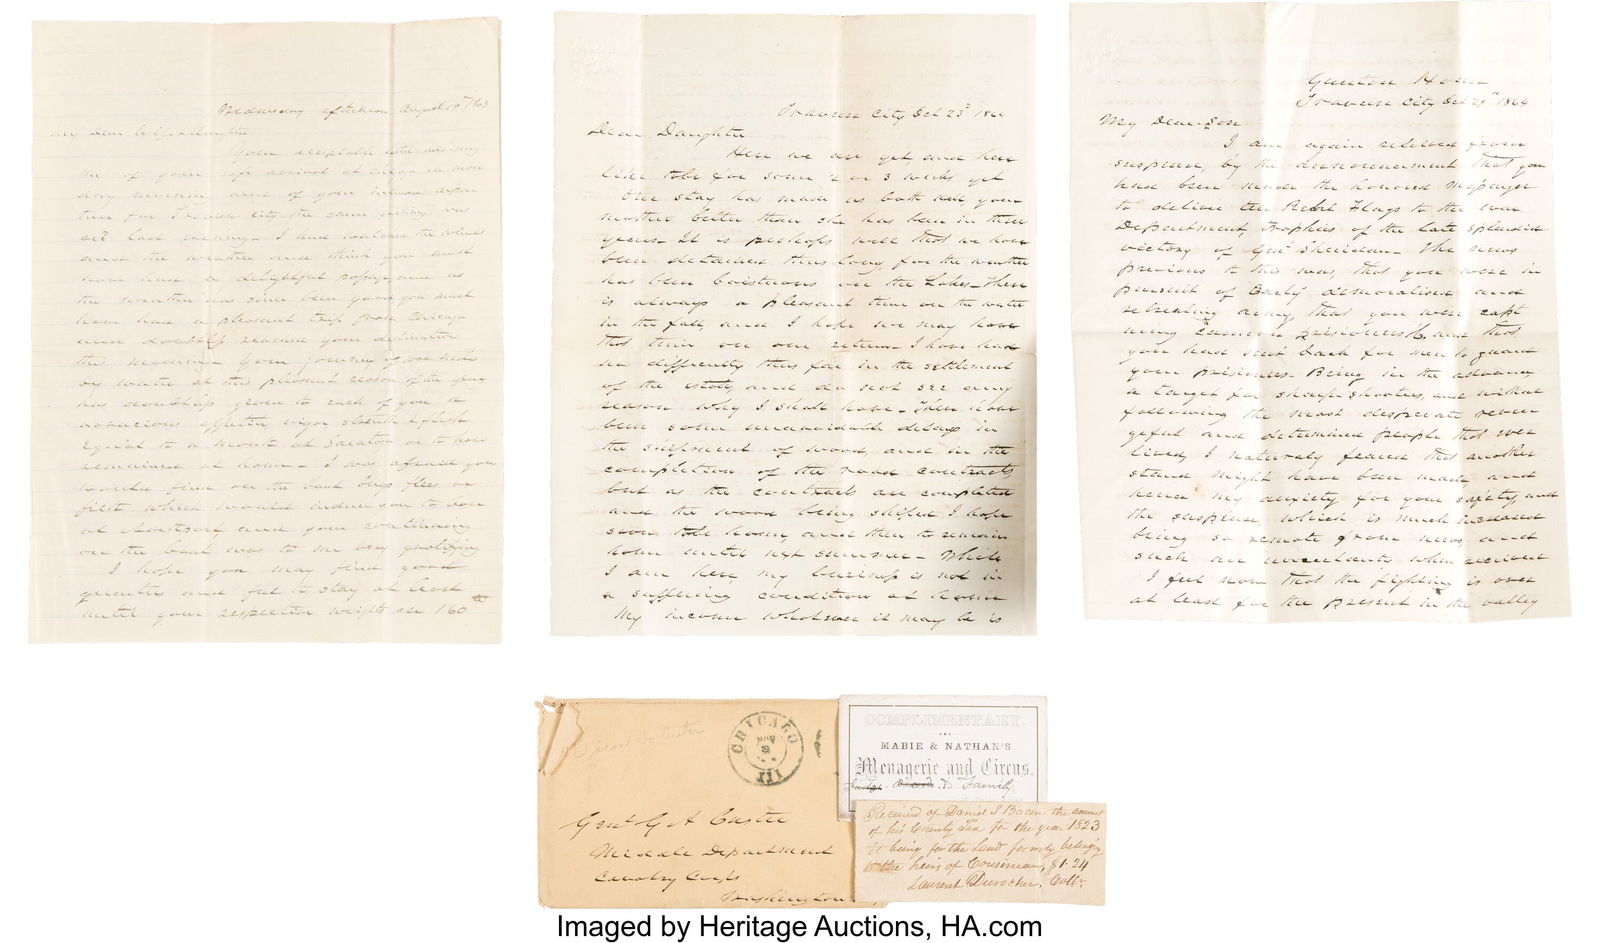 Wednesday afternoon August 19th 1863
My dear Wife & daughter
Your acceptable letter advising
me of your safe arrival at
and of your
for Traverse City the same evening was
last evening - I had watched the winds
and the weather and think you must
have had a delightful passage and as
the weather has since been good you must
have had a pleasant trip from Chicago
and doubtless reached your destination
this morning - Your journey of
by water at this pleasant season of the year
has doubtless given to each of you
appetite vigor strength & flesh
Equal to a month at or to have
remained at home - I was afraid you
would find on the boat bugs flees or
which would induce you to
at and your continuing
on the boat was to me very gratifying
I hope you may find good
quarters and to stay at least
until your respective weights are 160
Traverse City Oct 23d 1864
Dear Daughter
Here we are yet and have
like to be for some 2 or 3 weeks yet
Our stay has made us both well your
mother better than she has been in three
years - It is perhaps well that we have
been detained thus long for the weather
has been boisterous on the Lakes - There
is always a pleasant time on the water
in the fall, and I hope we may have
that time on our return - I have had
no difficulty thus far in the settlement
of the estate, and do not see any
reason why I shall have - There have
been some unavoidable delays in
the shipment of wood, and in the
completion of the road contracts
but as the contracts are completed
and the wood being shiped I hope
soon to be home, and then to remain
home until next summer - While
I am here my business is not in
a suffering condition at home
My income whatever it may be is
Gunton House
Traverse City Oct 29th 1864
My Dear Son
I am again relieved from
suspense, by the announcement that you
had been made the honored messenger
to deliver the Rebel Flags to the War
Department, trophies of the late splendid
victory of Genl Sheridan - The news
previous to this was, that you were in
pursuit of Early's demoralised and
retreating army, that you were capt
uring prisoners &c and that
you had sent back for men to guard
your prisoners - Being in the advance
a target for sharp shooters, and withal
following the most desperate reven
geful and determined people that ever
lived, I naturaly feared that another
stand might have been made, and
hence my anxiety for your safety, and
the suspense, which is much increased
being so remote from news and
such an uncertainty when received
I feel now that the fighting is over
at least for the present in the valley
CHICAGO
NOV
Ill
Genl G A Custer
Department
Cavalry Corps
Washington
COMPLIMENTARY.
MABIE & NATHAN'S
Menagerie and Circus.
Judge Bacon & Family
Received of Daniel S Bacon the amount
of his County Tax for the year 1823
it being for the Land formerly belonging
to the heirs of $1.24
Laurent Durocher. Collr.
Imaged by Heritage Auctions, HA.com